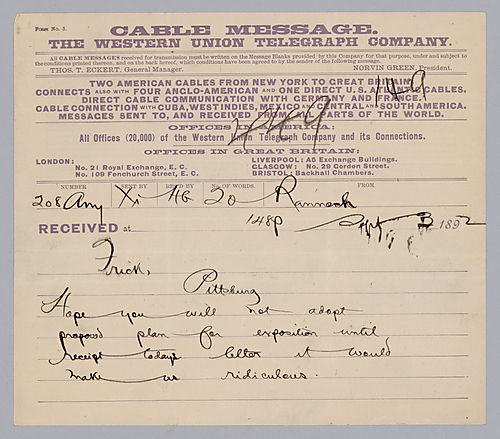 Form No. 3.
CABLE MESSAGE.
THE WESTERN UNION TELEGRAPH COMPANY.
All CABLE MESSAGES received for transmission must be written on the Message Blanks provided by this Company for that purpose, under and subject to
the conditions printed thereon, and on the back hereof, which conditions have been agreed to by the sender of the following message.
THOS. T. ECKERT, General Manager. NORVIN GREEN, President.
TWO AMERICAN CABLES FROM NEW YORK TO GREAT BRITAIN.
CONNECTS ALSO WITH FOUR ANGLO-AMERICAN AND ONE DIRECT U.S. ATLANTIC CABLES.
DIRECT CABLE COMMUNICATION WITH GERMANY AND FRANCE.
CABLE CONNECTION WITH CUBA, WEST INDIES, MEXICO AND CENTRAL AND SOUTH AMERICA.
MESSAGES SENT TO, AND RECEIVED FROM ALL PARTS OF THE WORLD.
149
449
OFFICES IN AMERICA:
All Offices (20,000) of the Western Union Telegraph Company and its Connections.
OFFICES IN GREAT BRITAIN:
LONDON: LIVERPOOL: A5 Exchange Buildings.
No. 21 Royal Exchange, E. C. GLASGOW: No. 29 Gordon Street.
No. 109 Fenchurch Street, E. C. BRISTOL: Backhall Chambers.
NUMBER SENT BY REC'D BY No. OF WORDS. FROM
208 Any Xi HG 20 Rannoch
148p
RECEIVED at Sept 3 1892
Frick,
Pittsburg
Hope you will not adopt
proposd plan for exposition until
receipt todays letter it would
make us ridiculous.